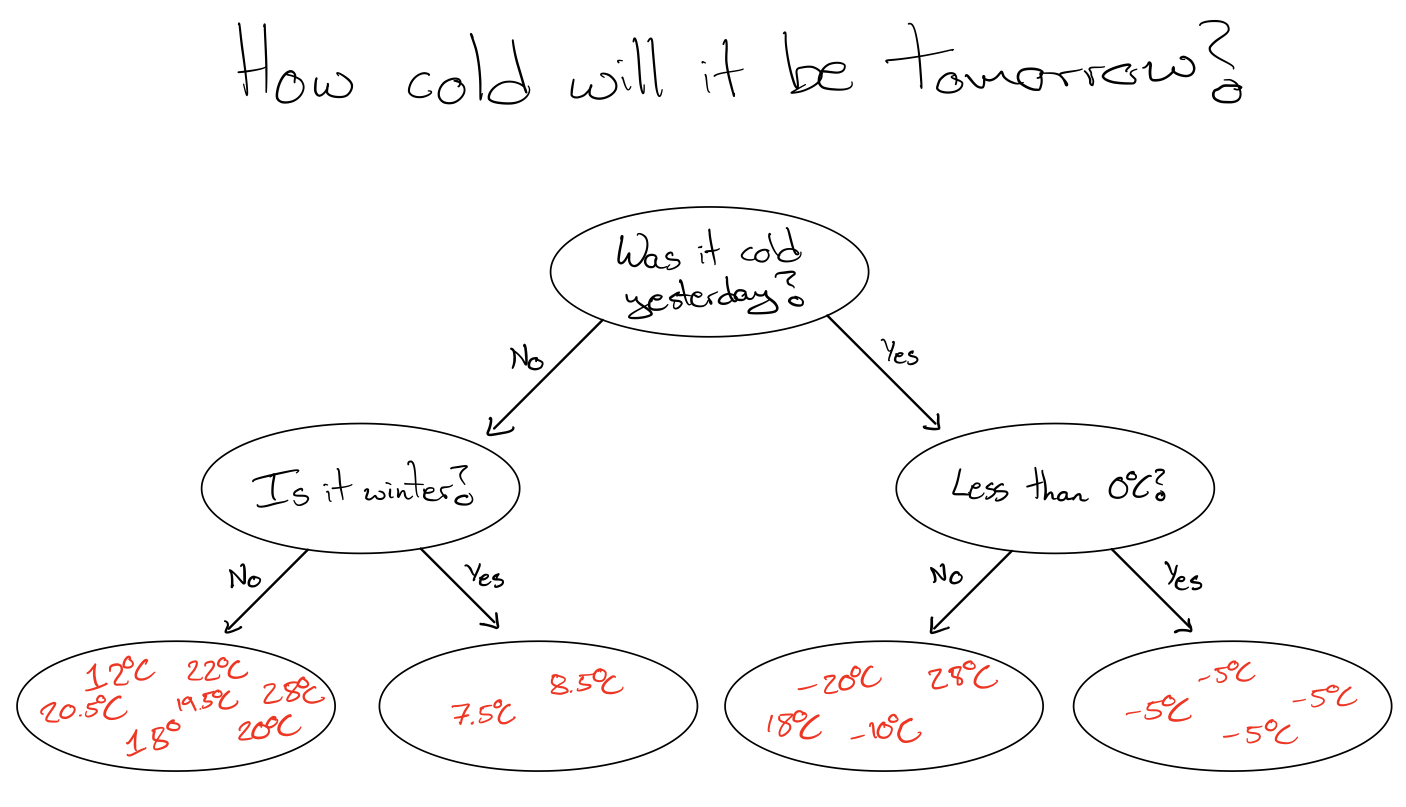 How cold will it be tomorrow?
Was it cold
yesterday?
No
Yes
Is it winter?
Less than 0°C?
No
Yes
No
Yes
12°C 22°C
20.5°C 19.5°C 28°C
18° 20°C
8.5°C
7.5°C
-20°C 28°C
18°C -10°C
-5°C
-5°C -5°C
-5°C